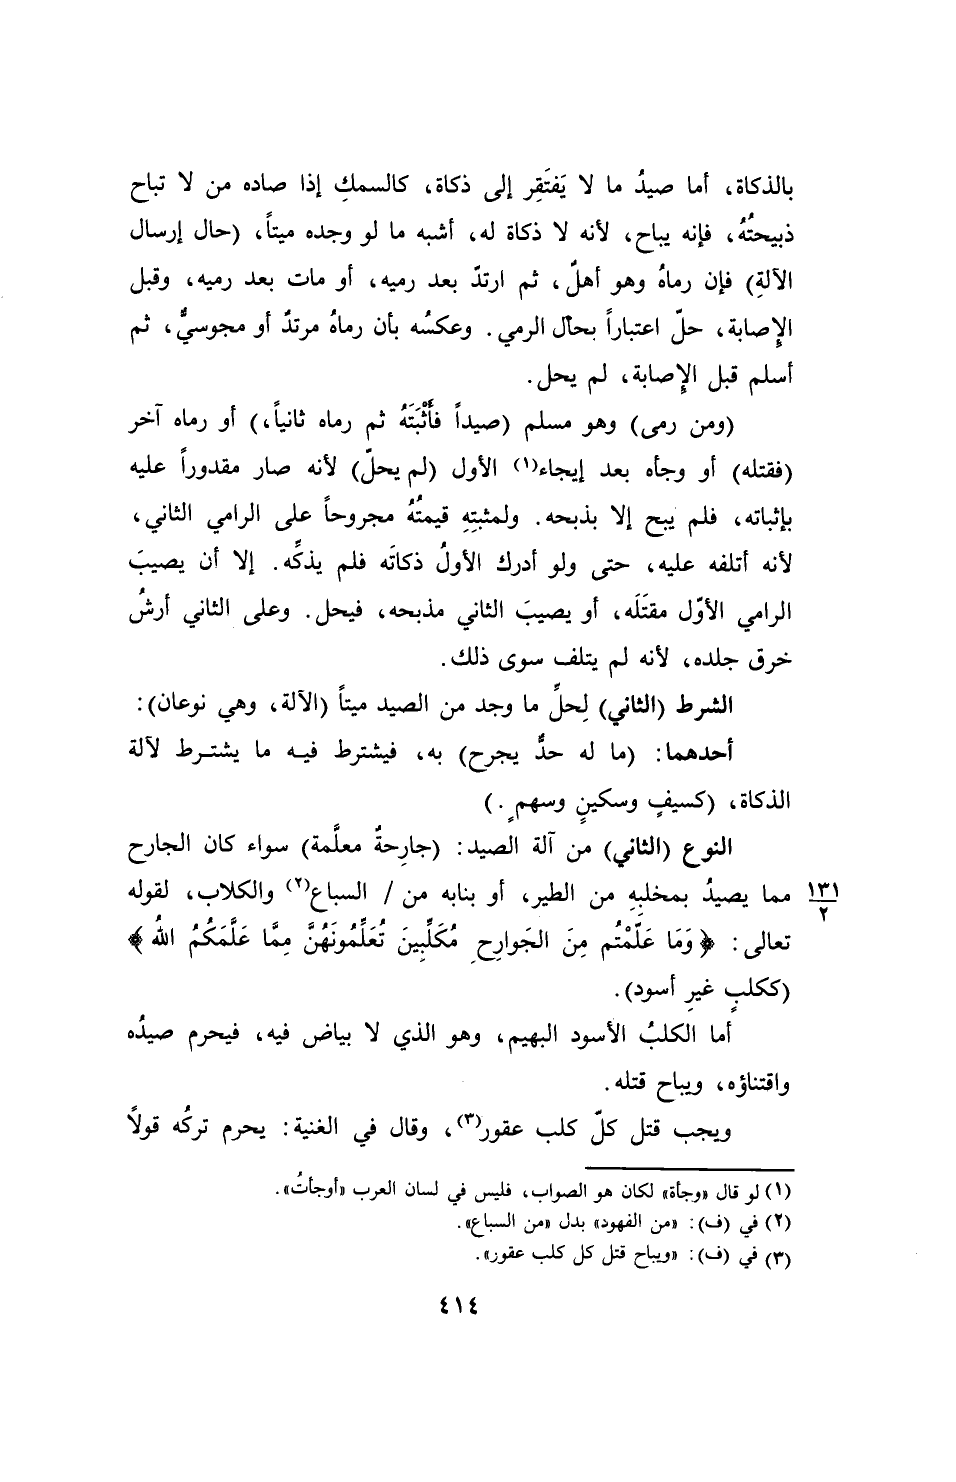 بالذكاة، أما صيدُ ما لا يَفتَقِر إلى ذكاة، كالسمكِ إذا صاده من لا تباح
ذبيحتُهُ، فإنه يباح، لأنه لا ذكاة له، أشبه ما لو وجده ميتاً، (حال إرسال
الآلةِ) فإن رماهُ وهو أهلٌ، ثم ارتدّ بعد رميه، أو مات بعد رميه، وقبل
الإِصابة، حلّ اعتباراً بحال الرمي. وعكسُه بأن رماهُ مرتدٌ أو مجوسيٌّ، ثم
أسلم قبل الإِصابة، لم يحل.
(ومن رمى) وهو مسلم (صيداً فأَثْبَتَهُ ثم رماه ثانياً،) أو رماه آخر
(فقتله) أو وجأه بعد إيجاء(١) الأول (لم يحلّ) لأنه صار مقدوراً عليه
بإثباته، فلم يبح إلا بذبحه. ولمثبتِهِ قيمتُهُ مجروحاً على الرامي الثاني،
لأنه أتلفه عليه، حتى ولو أدرك الأولُ ذكاتَه فلم يذكِّه. إلا أن يصيبَ
الرامي الأوّل مقتَلَه، أو يصيبَ الثاني مذبحه، فيحل. وعلى الثاني أرشُ
خرق جلده، لأنه لم يتلف سوى ذلك.
الشرط (الثاني) لِحلِّ ما وجد من الصيد ميتاً (الآلة، وهي نوعان):
أحدهما: (ما له حدٌّ يجرح) به، فيشترط فيه ما يشترط لآلة
الذكاة، (كسيفٍ وسكينٍ وسهمٍ.)
النوع (الثاني) من آلة الصيد: (جارِحةٌ معلَّمة) سواء كان الجارح
مما يصيدُ بمخلبِهِ من الطير، أو بنابه من / السباع(٢) والكلاب، لقوله
١٣١
٢
تعالى: ﴿وَمَا عَلَّمْتُم مِنَ الجَوارِحِ مُكَلِّبِينَ تُعَلِّمُونَهُنَّ مِمَّا عَلَّمَكُمُ اللهُ﴾
(ككلبٍ غيرِ أسود).
أما الكلبُ الأسود البهيم، وهو الذي لا بياض فيه، فيحرم صيدُه
واقتناؤه، ويباح قتله.
ويجب قتل كلّ كلب عقور(٣)، وقال في الغنية: يحرم تركُه قولاً
(١) لو قال «وجأة» لكان هو الصواب، فليس في لسان العرب «أوجأتُ».
(٢) في (ف): «من الفهود» بدل «من السباع».
(٣) في (ف): «ويباح قتل كل كلب عقور».
٤١٤